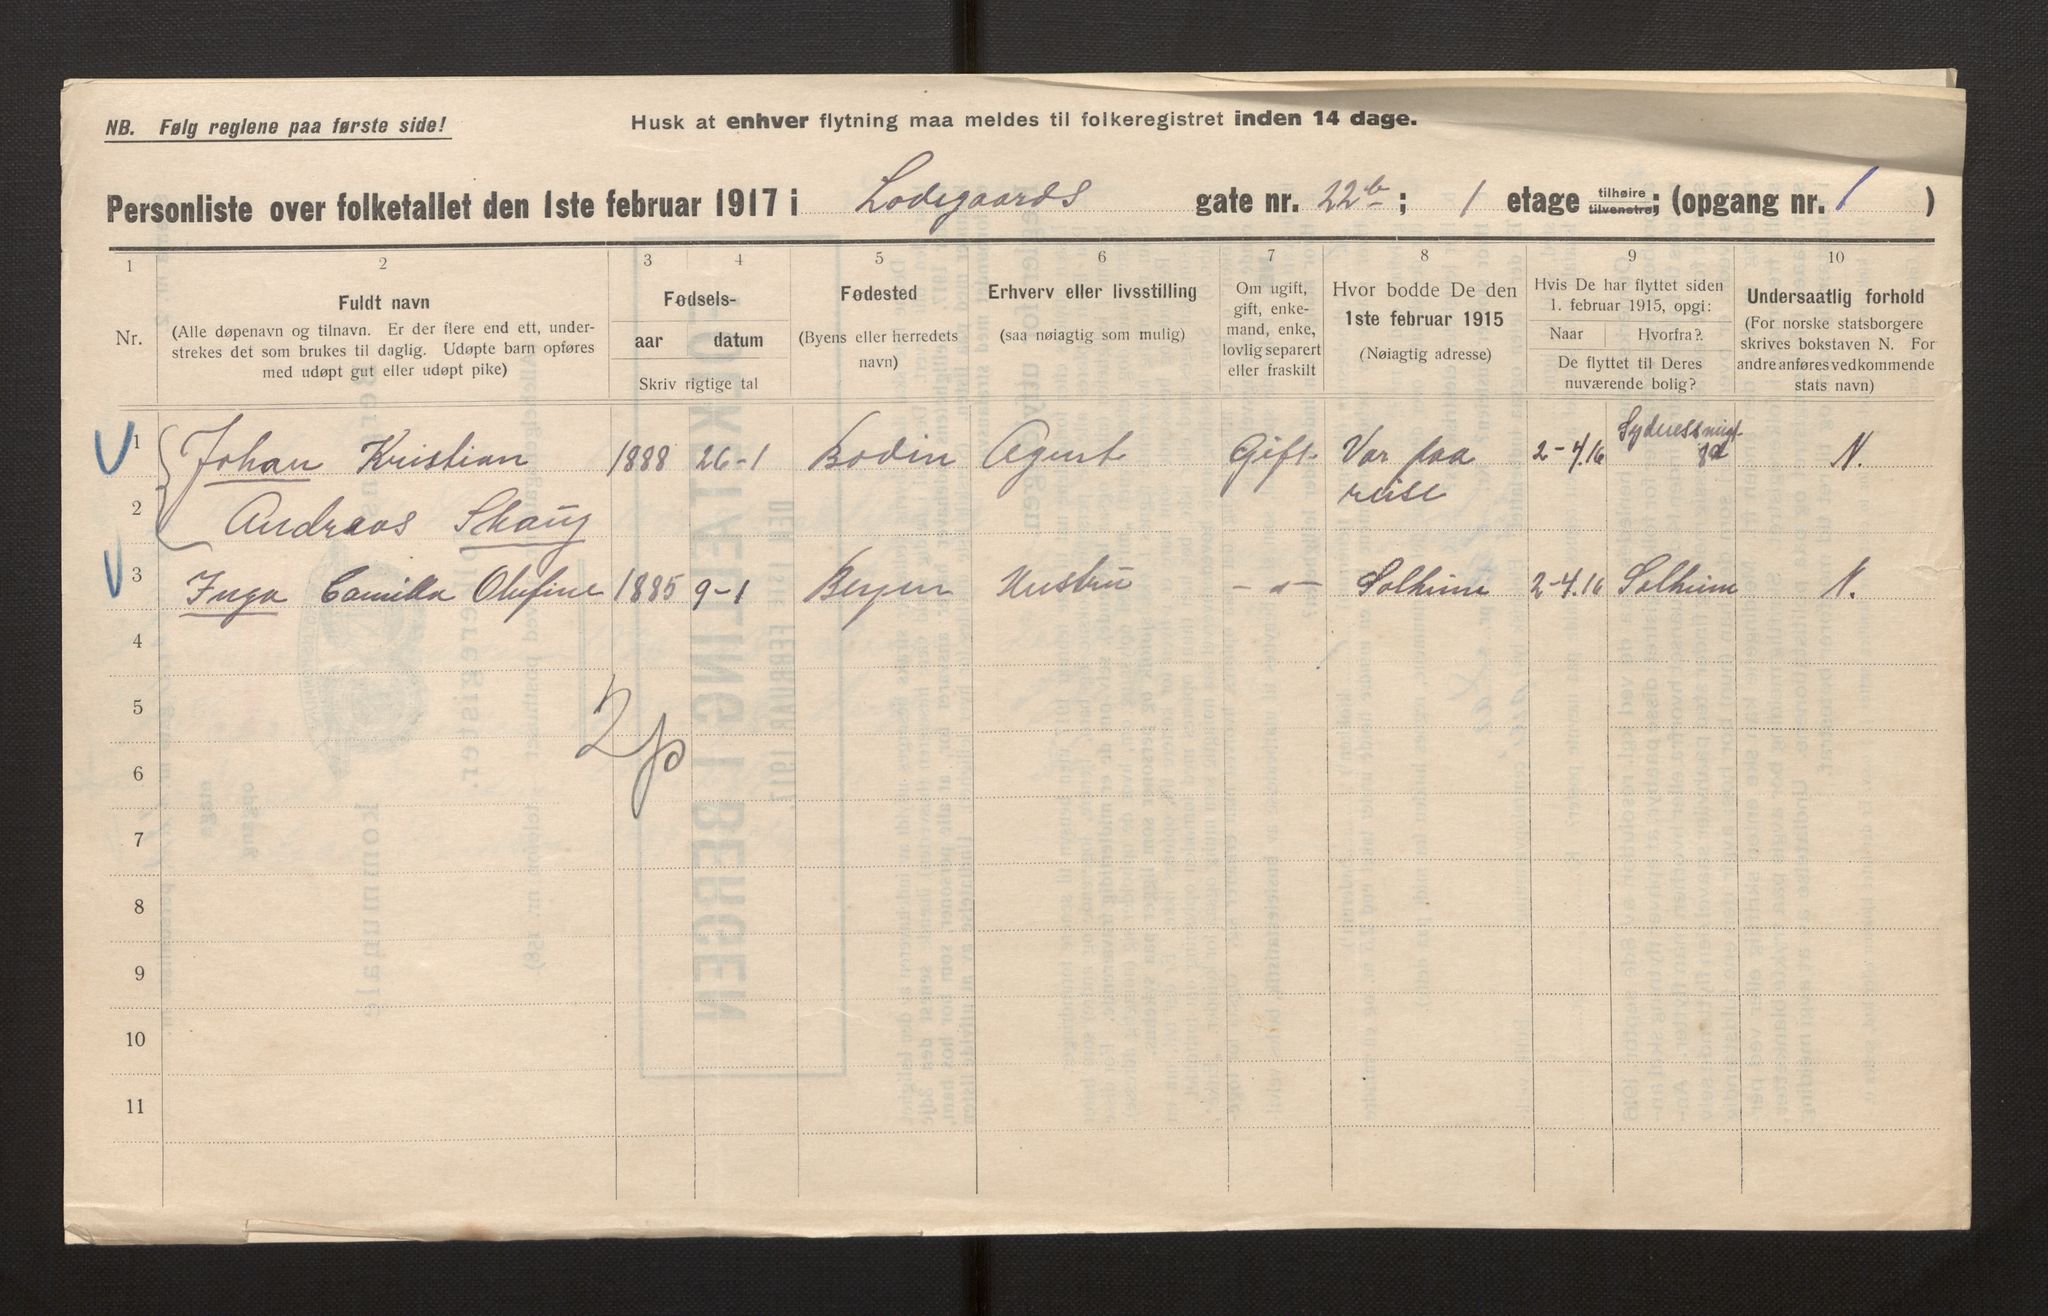 NB. Følg reglene paa første side!
Husk at enhver flytning maa meldes til folkeregistret inden 14 dage.
Personliste over folketallet den 1ste februar 1917 i Lodegaards gate nr. 22b; 1 etage tilhøire tilvenstre; (opgang nr. 1)
1 2 3 4 5 6 7 8 9 10
Nr.
Fuldt navn
(Alle døpenavn og tilnavn. Er der flere end ett, under-
strekes det som brukes til daglig. Udøpte barn opføres
med udøpt gut eller udøpt pike)
Fødsels-
aar datum
Skriv rigtige tal
Fødested
(Byens eller herredets
navn)
Erhverv eller livsstilling
(saa nøiagtig som mulig)
Om ugift,
gift, enke-
mand, enke,
lovlig separert
eller fraskilt
Hvor bodde De den
1ste februar 1915
(Nøiagtig adresse)
Hvis De har flyttet siden
1. februar 1915, opgi:
Naar Hvorfra?
De flyttet til Deres
nuværende bolig?
Undersaatlig forhold
(For norske statsborgere
skrives bokstaven N. For
andre anføres vedkommende
stats navn)
1 Johan Kristian 1888 26-1 Bodin Agent Gift Var paa reise 2-4.16 N.
2 Andreas Skaug
3 Inga Camilla Olufine 1885 9-1 Bergen Hustru -"- Solheim 2-4.16 Solheim N.
4
5
2p
6
7
8
9
10
11